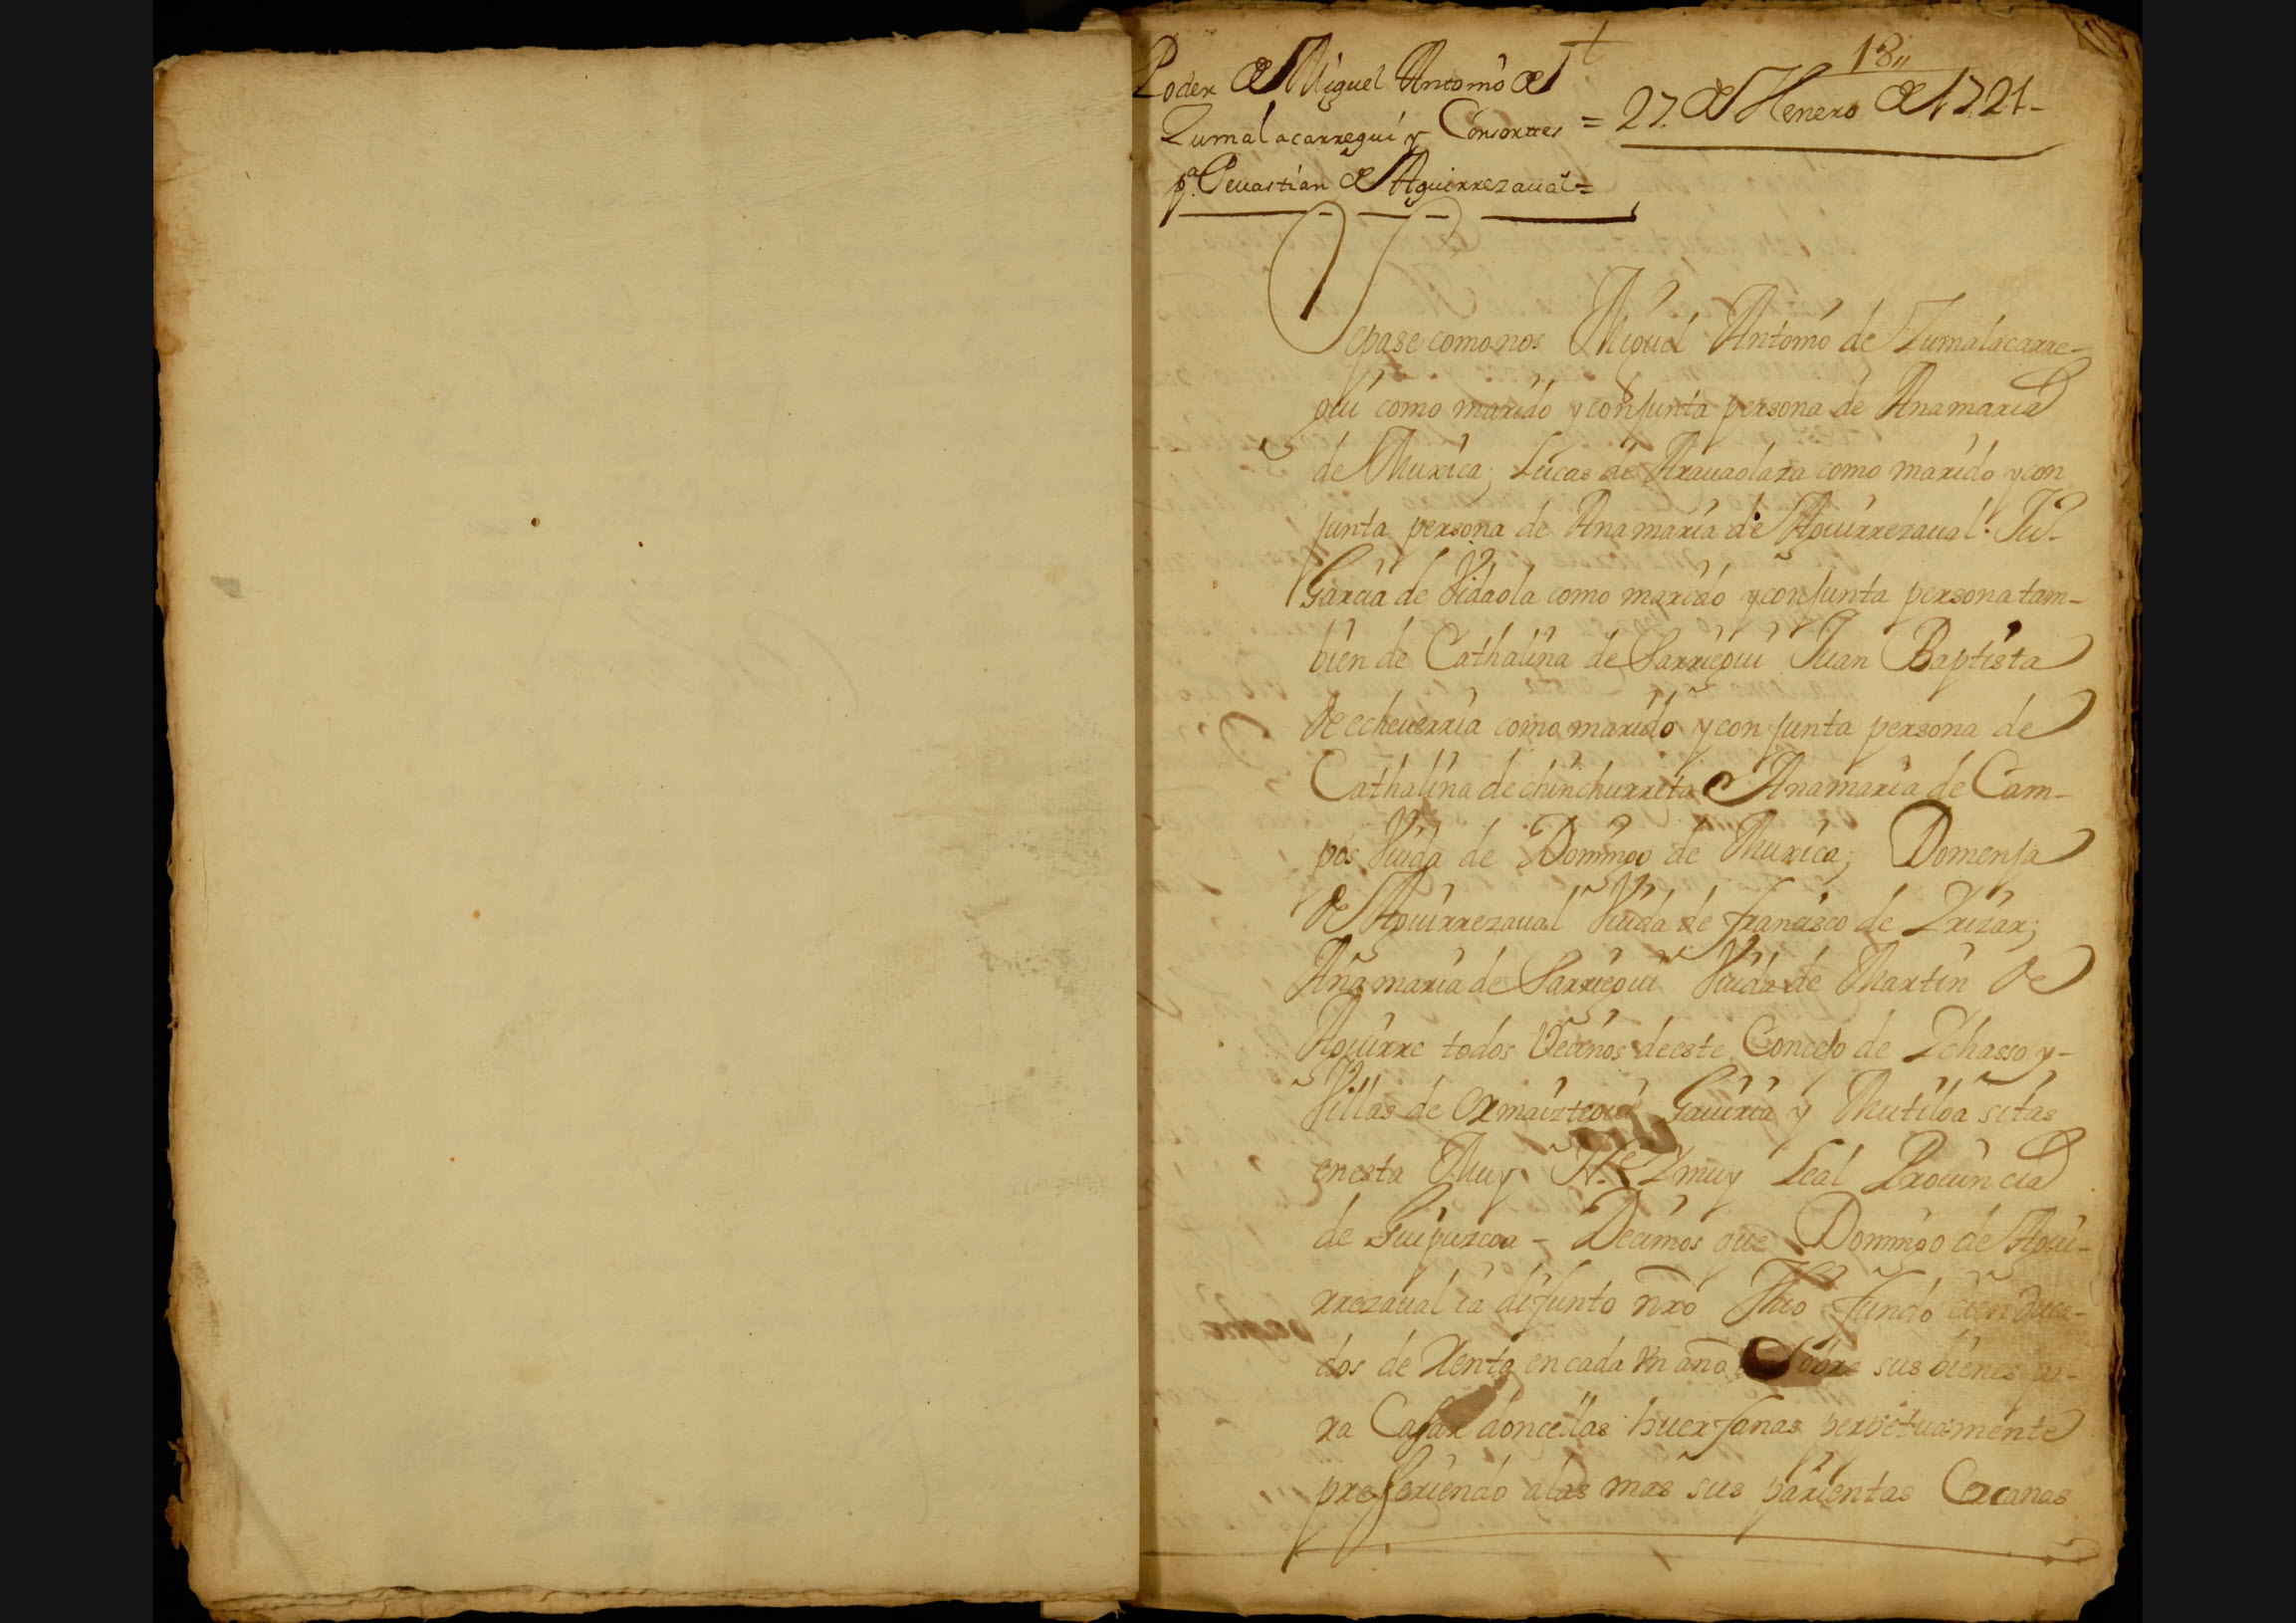 18,,
Poder de Miguel Antonio de
Zumalacarregui y Consortes = 27. de Henero de 1721-
pa. Sevastian de Aguirrezaual =
Sepase como nos Miguel Antonio de Zumalacarre-
gui como marido y conjunta persona de Anamaria
de Muxica; Lucas de Arauaolaza como marido y con
junta persona de Anamaria de Aguirrezaual. Ju.
Garcia de Vidaola como marido y conjunta persona tam-
bien de Cathalina de Sarriegui Juan Baptista
de echeuerria como marido y conjunta persona de
Cathalina de chinchurreta Anamaria de Cam-
pos Viuda de Domingo de Muxica; Domenja
de Aguirrezaual Viuda de francisco de Yrizar;
Anamaria de Sarriegui Viuda de Martin de
Aguirre todos Vecinos deeste Concejo de Ychasso y-
Villas de Ormaiztegui Gauiria y Mutiloa sitas
enesta Muy N.e Y muy Leal Prouincia
de Guipuzcoa - Decimos que Domingo de Agui-
rrezaual ia difunto nro Thio fundó cien duca-
dos de Renta en cada Vn año sobre sus bienes pa-
ra Casar doncellas huerfanas perpetuamente
prefferiendo alas mas sus parientas Cercanas